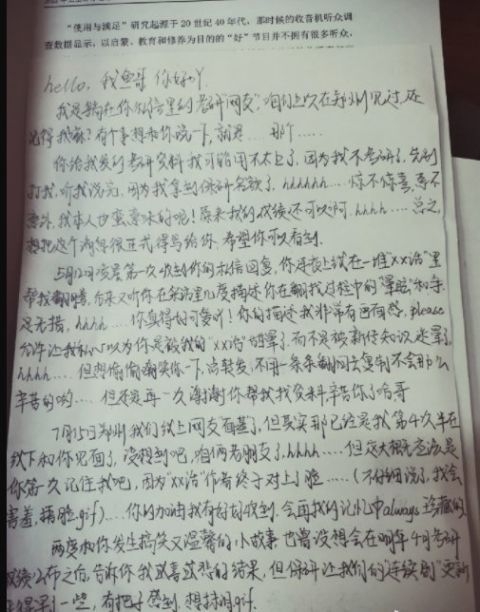 “使用与满足”研究起源于 20 世纪 40 年代，那时候的收音机听众调
查数据显示，以启蒙、教育和修养为目的的“好”节目并不拥有很多听众，
hello，我鱼哥 你好丫
我是躺在你私信里的考研“网友”，咱们上次在郑州见过，还
记得我嘛？有个事想和你说一下，就是……那个……
你给我发的考研资料我可能用不太上了，因为我不考研了，先别
打我，听我说完，因为我拿到保研名额了，hhhhhh……惊不惊喜，意不
意外，我本人也蛮意外的呢！原来我的成绩还可以啊，hhhh……总之，
想把这个消息很正式得写给你，希望你可以看到.
5月12日凌晨第一次收到你的私信回复，你连夜上线在一堆“xx洽”里
帮我翻，后来又听你在里几度描述你在翻找过程中的“晕眩”和手
足无措，hhhh……你真得好可爱吖！你的描述我非常有画面感，please
允许让我私心以为你是被我的“xx洽”给晕了而不是被新传知识迷晕了.
hhhh……但想偷偷嘲笑你一下，点转发，不用一条条翻回去复制不会那么
辛苦的哟……但还是再一次谢谢你帮我找资料，辛苦你了哈哥
7月15日郑州我们线上网友面基了，但其实那已经是我第4次在
线下和你见面了，没想到吧，咱俩老朋友了，hhhh……但这大概应该是
你第一次记住我吧，因为“xx洽”作者终于对上了脸……（不仔细说了，我会
害羞，捂脸.gif）……你的加油我有好好收到，会再我的记忆中always珍藏的.
两度和你发生搞笑又温馨的小故事 也曾设想会在明年4月考研
成绩公布之后，告诉你我或喜或悲的结果，但保研让我们的“连续剧”更新
得早了一些，有把子感到，想掉眼.gif